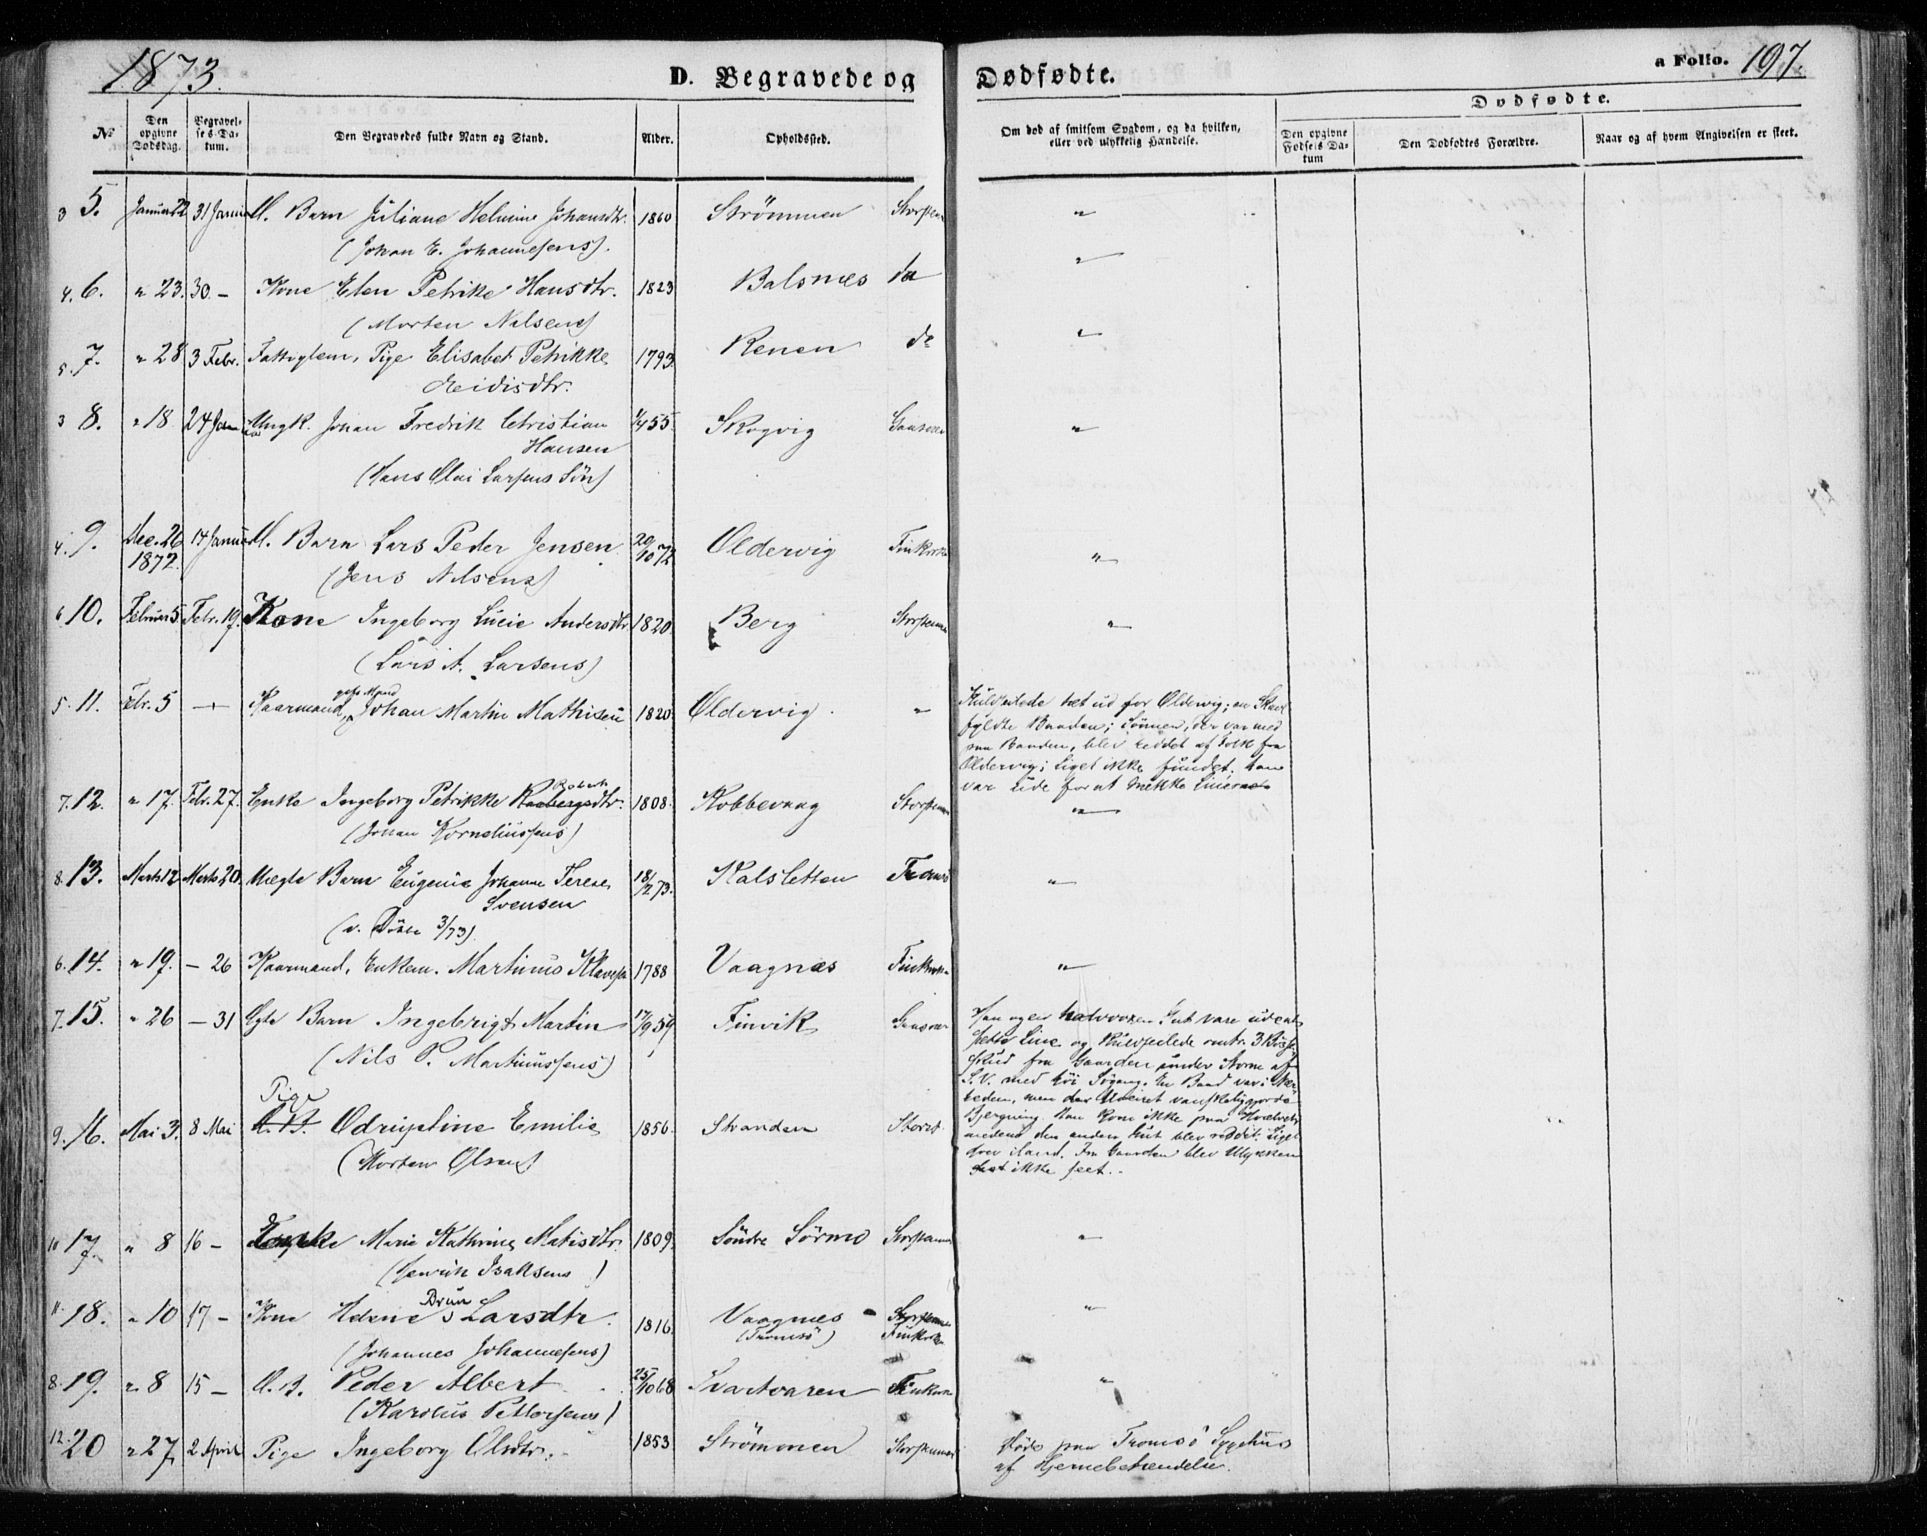 1873.
D. Begravede og Dødfødte.
a Folio. 197.
No
Den opgivne Dødsdag.
Begravelses Datum.
Den Begravedes fulde Navn og Stand.
Alder.
Opholdssted.
Om død af smitsom Sygdom, og da hvilken, eller ved ulykkelig Hændelse.
Dødfødte.
Den opgivne Fødsels Datum
Den Dødfødtes Forældre.
Naar og af hvem Angivelsen er skeet.
3 5. Januar 22 31 Januar U. Barn Juliane Helmine Johansdtr. 1860 Strømmen "
(Johan E. Johannesens).
4. 6. " 23. 30 - Kone Elen Petrike Hansdtr. 1823 Balsnes do "
(Morten Nilsens)
5. 7. " 28 3 Febr. Fattiglem, Pige Elisabet Petrikke 1793 Renen do "
dtr.
3 8. " 18. 24 Jan Ungk. Johan Fredrik Christian 55. Skogvig "
Hansen
(Hans Olai Larsens Søn)
4. 9. Dec. 26 1872. 14 Januar U. Barn Lars Peder Jensen. 29/10 72 Oldervig "
(Jens Nilsens)
6. 10. Februar 5. Febr. 19. Kone Ingeborg Lucie Andersdtr. 1820. Berg "
(Lars A. Larsens)
5. 11. Febr. 5 - Kaarmand, gift Mand Johan Martin Mathisen 1820 Oldervig. " Kuldseilede tæt ud for Oldervig; en Skavl
fyldte Baaden; Sønnen, der var med
paa Baaden, blev reddet af Folk fra
Oldervig; Liget ikke fundet. Han
var ude for at trække Linerne
7. 12. " 17. Febr. 27. Enke Ingeborg Petrikke dtr. 1808. Kobbevaag "
(Johan Korneliussens)
8. 13. Marts 12 Marts 20. Uægte Barn Eugenie Johanne Terese 18/2 73. Kalsletten Tromsø "
Svensen
(v. Døbt 3/73).
6. 14. " 19. - 26 Kaarmand, Enkem. Martinus 1788 Vaagnæs "
7. 15. " 26 - 31 Ægte Barn Ingebrigt Martin 17/9 59 Finvik Han og en halvvoxen Gut vare ude at
(Nils P. Martinussens) sætte Line og kuldseilede omtr. 3 Bøsse-
skud fra Gaarden under Storm af
S.V. med høi Søgang. En Baad var i Nær-
heden, men der Uveiret vanskeliggjorde
Bjergning. Han kom ikke paa Hvælvet
medens den anden Gut blev reddet. Liget
drev iland. Fra Gaarden blev Ulykken
ikke seet. -
9. 16. Mai 3. 8 Mai Pige Emilie 1856. Stranden Storst
(Morten Olsens)
10 17. " 8 16 - Enke Marie Kathrine Matisdtr. 1809. Søndre Sørmo "
(Henrik Isaksens)
11. 18. " 10 17 - Kone Larsdtr. Brun 1816. Vaagnes - (Tromsø) "
(Johannes Johannesens)
8. 19. " 8 15 - U. B. Peder Albert 25/10 68 Svartvaren "
(Karolus Pettersens)
12. 20 " 27. 2 April Pige Ingeborg Olsdtr. 1853 Strømmen Døde paa Tromsø Sygehus
af Hjernebetændelse.